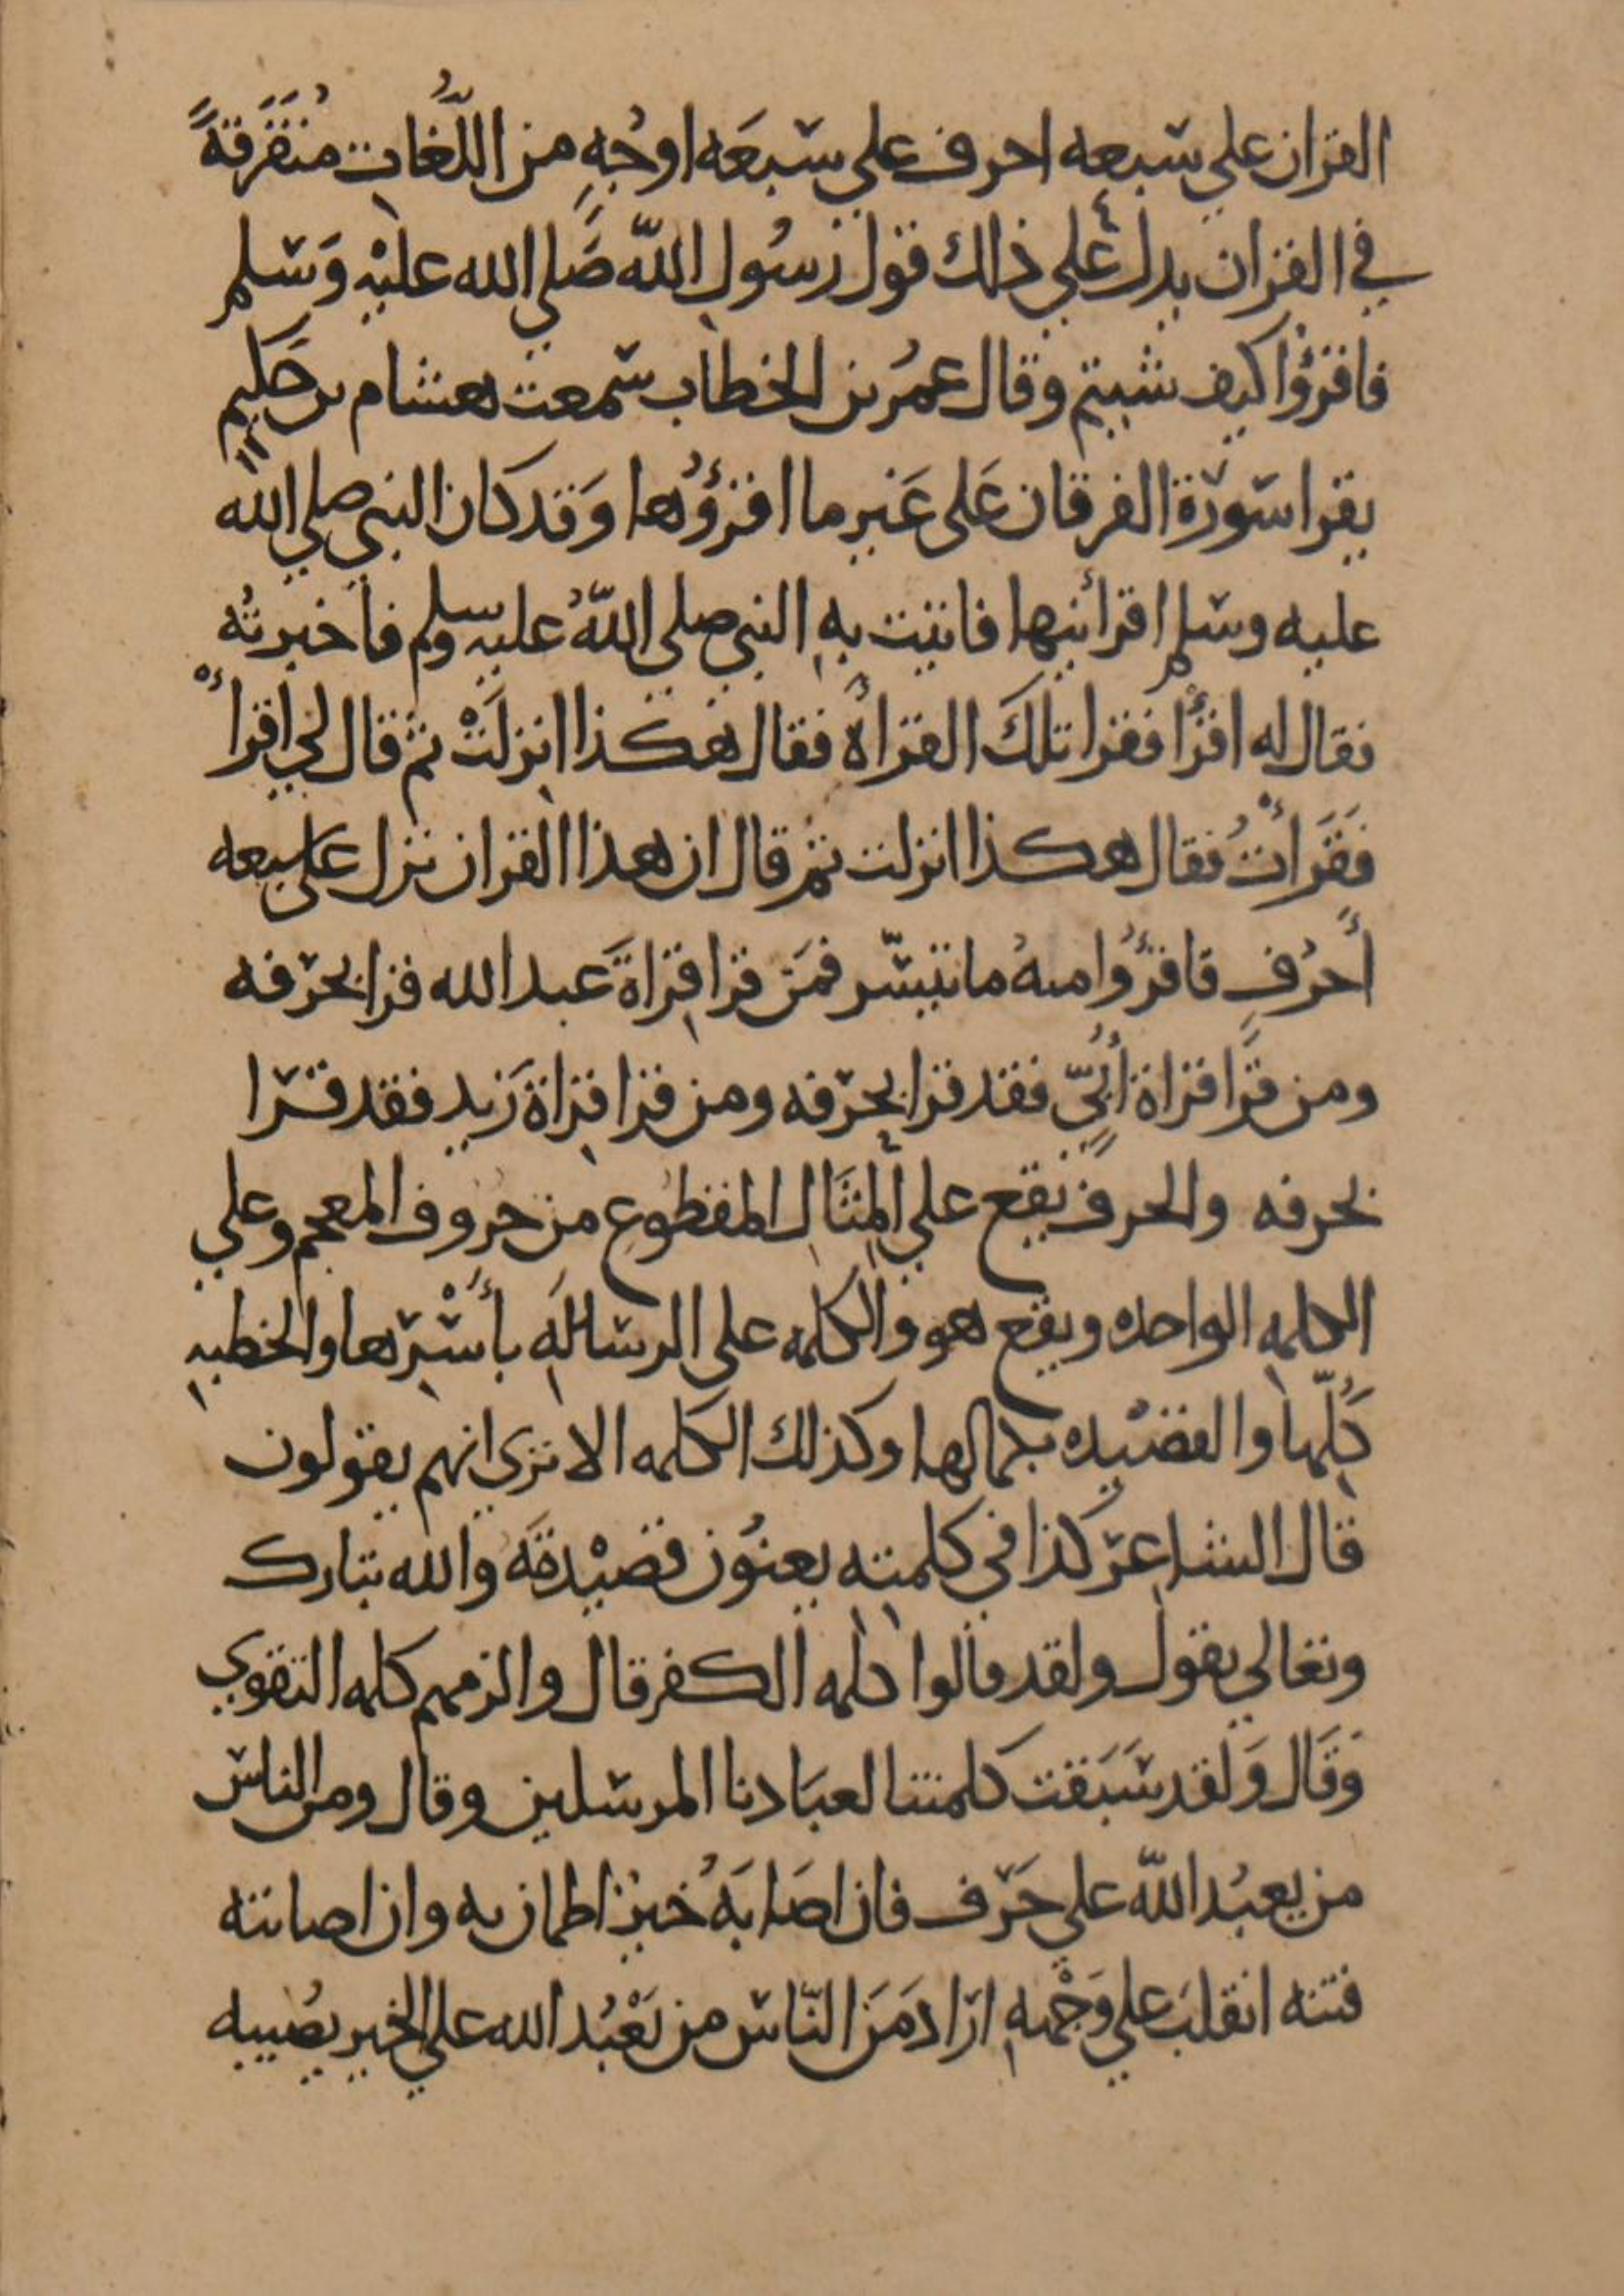 القران علي سبعه احرف علي سبعَه اوجُهٍ من اللُّغات مُتفَرقةً
في القران يدل علي ذلك قول رسُول اللّه صَلي الله عليْهِ وَسلم
فاقرؤُا كيف شيتم وقال عمُر بن الخطاب سمعت هشام بن حَكيم
يقرا سَورَة الفرقان عَلى غَير ما اقرؤُها وَقد كان النبي صلي الله
عليه وسلم اقرأنيها فاتيت بهِ النبي صلي اللّهُ عليه وسلم فأخبرتُه
فقال له اقرَأ فقرا تلكَ القراأة فقال هكذا انزلَتْ ثم قال لي اقرأْ
فَقَرأْتُ فقال هكذا انزلت ثم قال ان هذا القران نزل على سبعه
أَحرُفٍ فاقرؤُا منهُ ما تيسّر فمَن قرا قِراةَ عبد الله قرا بحرفه
ومن قرَا قراة أُبَيّ فقد قرا بحرفه ومن قرا قِراةَ زَيد فقد قرا
بحرفه والحرف يَقع علي المِثَالِ المقطُوع من حرُوف المعجم وعلي
الكلمهِ الواحده ويقع هو والكلمه على الرسالَهِ بأَسْرِها والخطبهِ
كُلِّها والقصيْده بكمالها وكذلك الكلمه الا تري انهم يقولون
قال الشاعر كذا في كلمته يعنُون قصيْدتَه والله تبارك
وتعالي يقول ولقد قالوا كلمه الكفر قال والزمهم كلمه التقوي
وَقَال وَلقد سَبَقت كلمتنا لعبَادنا المرسلين وقال ومن الناس
من يعبُد اللّه على حَرف فان اصَابَهُ خيرٌ اطمان به وان اصابته
فتنه انقلبَ علي وَجْههِ ارَاد مَن النّاس من يَعْبُد الله علي الخير يصُيبه